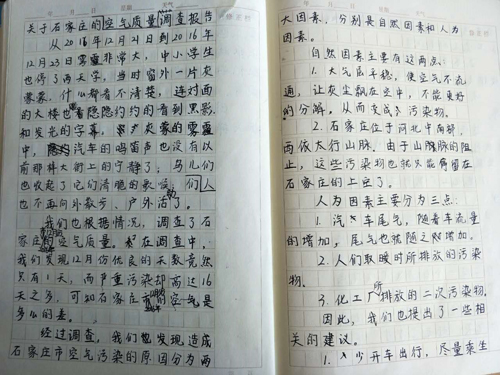 关于石家庄的空气质量调查报告
从2016年12月21日到2016年
12月23日雾霾非常大，中小学生
也停了两天学，当时窗外一片灰
雾雾，什么都看不清楚，连对面
的大楼也隐隐约约的看到黑影
和发光的字幕，灰雾的雾霾
中，汽车的鸣笛声也没有以
前那科大街上的宁静了，鸟儿们
也收起了它们清脆的歌喉，们人
也不再向外散步、户外活动了。
我们也根据情况，调查了石
家庄的空气质量。在调查中，
我们发现12月份优良的天数竟然
只有1天，而严重污染却高达16
天之多，可知石家庄市的空气是
多么的差。
经过调查，我们发现造成
石家庄市空气污染的原因分为两
大因素，分别是自然因素和人为
因素。
自然因素主要有这两点：
1.大气层平稳，使空气不流
通，让灰尘飘在空中，不能更好
的分解，从而变成污染物。
2.石家庄位于河北中南部，
西依太行山脉，由于山脉的阻
止，这些污染物也就只能停留在
石家庄的上空了。
人为因素主要分为三点：
1.汽车尾气，随着车流量
的增加，尾气也就随之增加。
2.人们取暖时所排放的污染
物。
3.化工厂所排放的二次污染物。
因此，我们也提出了一些相
关的建议。
1.少开车出行，尽量乘坐